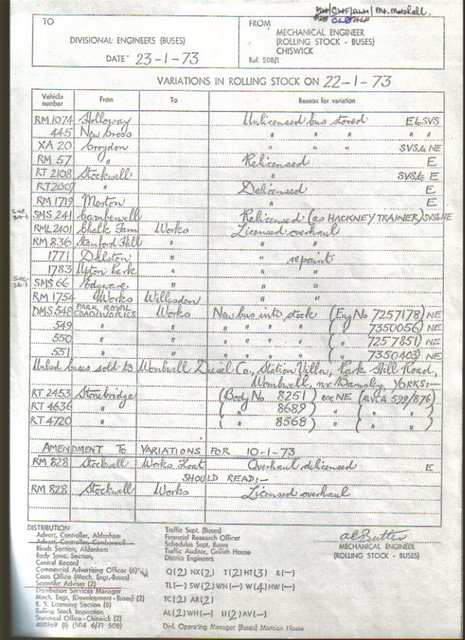 Mr. Marshall.
TO
DIVISIONAL ENGINEERS (BUSES)
DATE 23-1-73
FROM
MECHANICAL ENGINEER
(ROLLING STOCK - BUSES)
CHISWICK
Ref. 508/1
VARIATIONS IN ROLLING STOCK ON 22-1-73
Vehicle number From To Reason for variation
RM 1074 Holloway Unlicensed bus stored ELSVS
445 New Cross " " " " "
XA 20 Croydon " " " SVS& NE
RM 57 " Relicensed E
RT 2108 Stockwell " SVS& E
RT 2007 " Delicensed E
RM 1719 Merton " E
SMS 241 Camberwell Relicensed (as HACKNEY TRAINER) SVS& NE
RML 2401 Chalk Farm Works Licensed overhaul
RM 836 Stamford Hill " " "
1771 Dalston " " repaint
1783 Upton Park " " "
SMS 66 Edgware " " "
RM 1754 Works Willesden " "
DMS 548 PARK ROYAL COACHWORKS Works New bus into stock (Eng No 7257178) NE
549 " " " " " " ( " 7350056) NE
550 " " " " " " ( " 7257851) NE
551 " " " " " " ( " 7350403) NE
Unlicsd buses sold to Wombwell Diesel Co., Station Villa, Park Hill Road,
Wombwell, nr. Barnsley, YORKS:-
RT 2453 Stonebridge (Body No 8251) ex NE (MVCA 599/876)
RT 4636 " ( " 8689) " ( " " )
RT 4720 " ( " 8568) " ( " " )
AMENDMENT TO VARIATIONS FOR 10-1-73
RM 828 Stockwell Works Float Overhaul delicensed E
SHOULD READ:-
RM 828 Stockwell Works Licensed overhaul
DISTRIBUTION
Advert, Controller, Aldenham
Advert, Controller, Camberwell
Blinds Section, Aldenham
Body Spns. Section
Central Record
Commercial Advertising Officer (6)
Costs Office (Mech. Engr.-Buses)
Scientific Adviser (2)
Distribution Services Manager
Mech. Engr. (Development - Buses) (2)
R. S. Licensing Section (8)
Rolling Stock Inspection
Statistical Office - Chiswick (2)
Traffic Supt. (Buses)
Financial Research Officer
Schedules Supt. Buses
Traffic Auditor, Griffith House
District Engineers
Q(2) NX(2) T(2) HT(3) R(-)
TL(-) SW(2) WN(-) W(4) HW(-)
TC(2) AR(2)
AL(2) WH(-) U(2) AV(-)
Divl. Operating Manager (Buses) Mansion House
MECHANICAL ENGINEER
(ROLLING STOCK - BUSES)